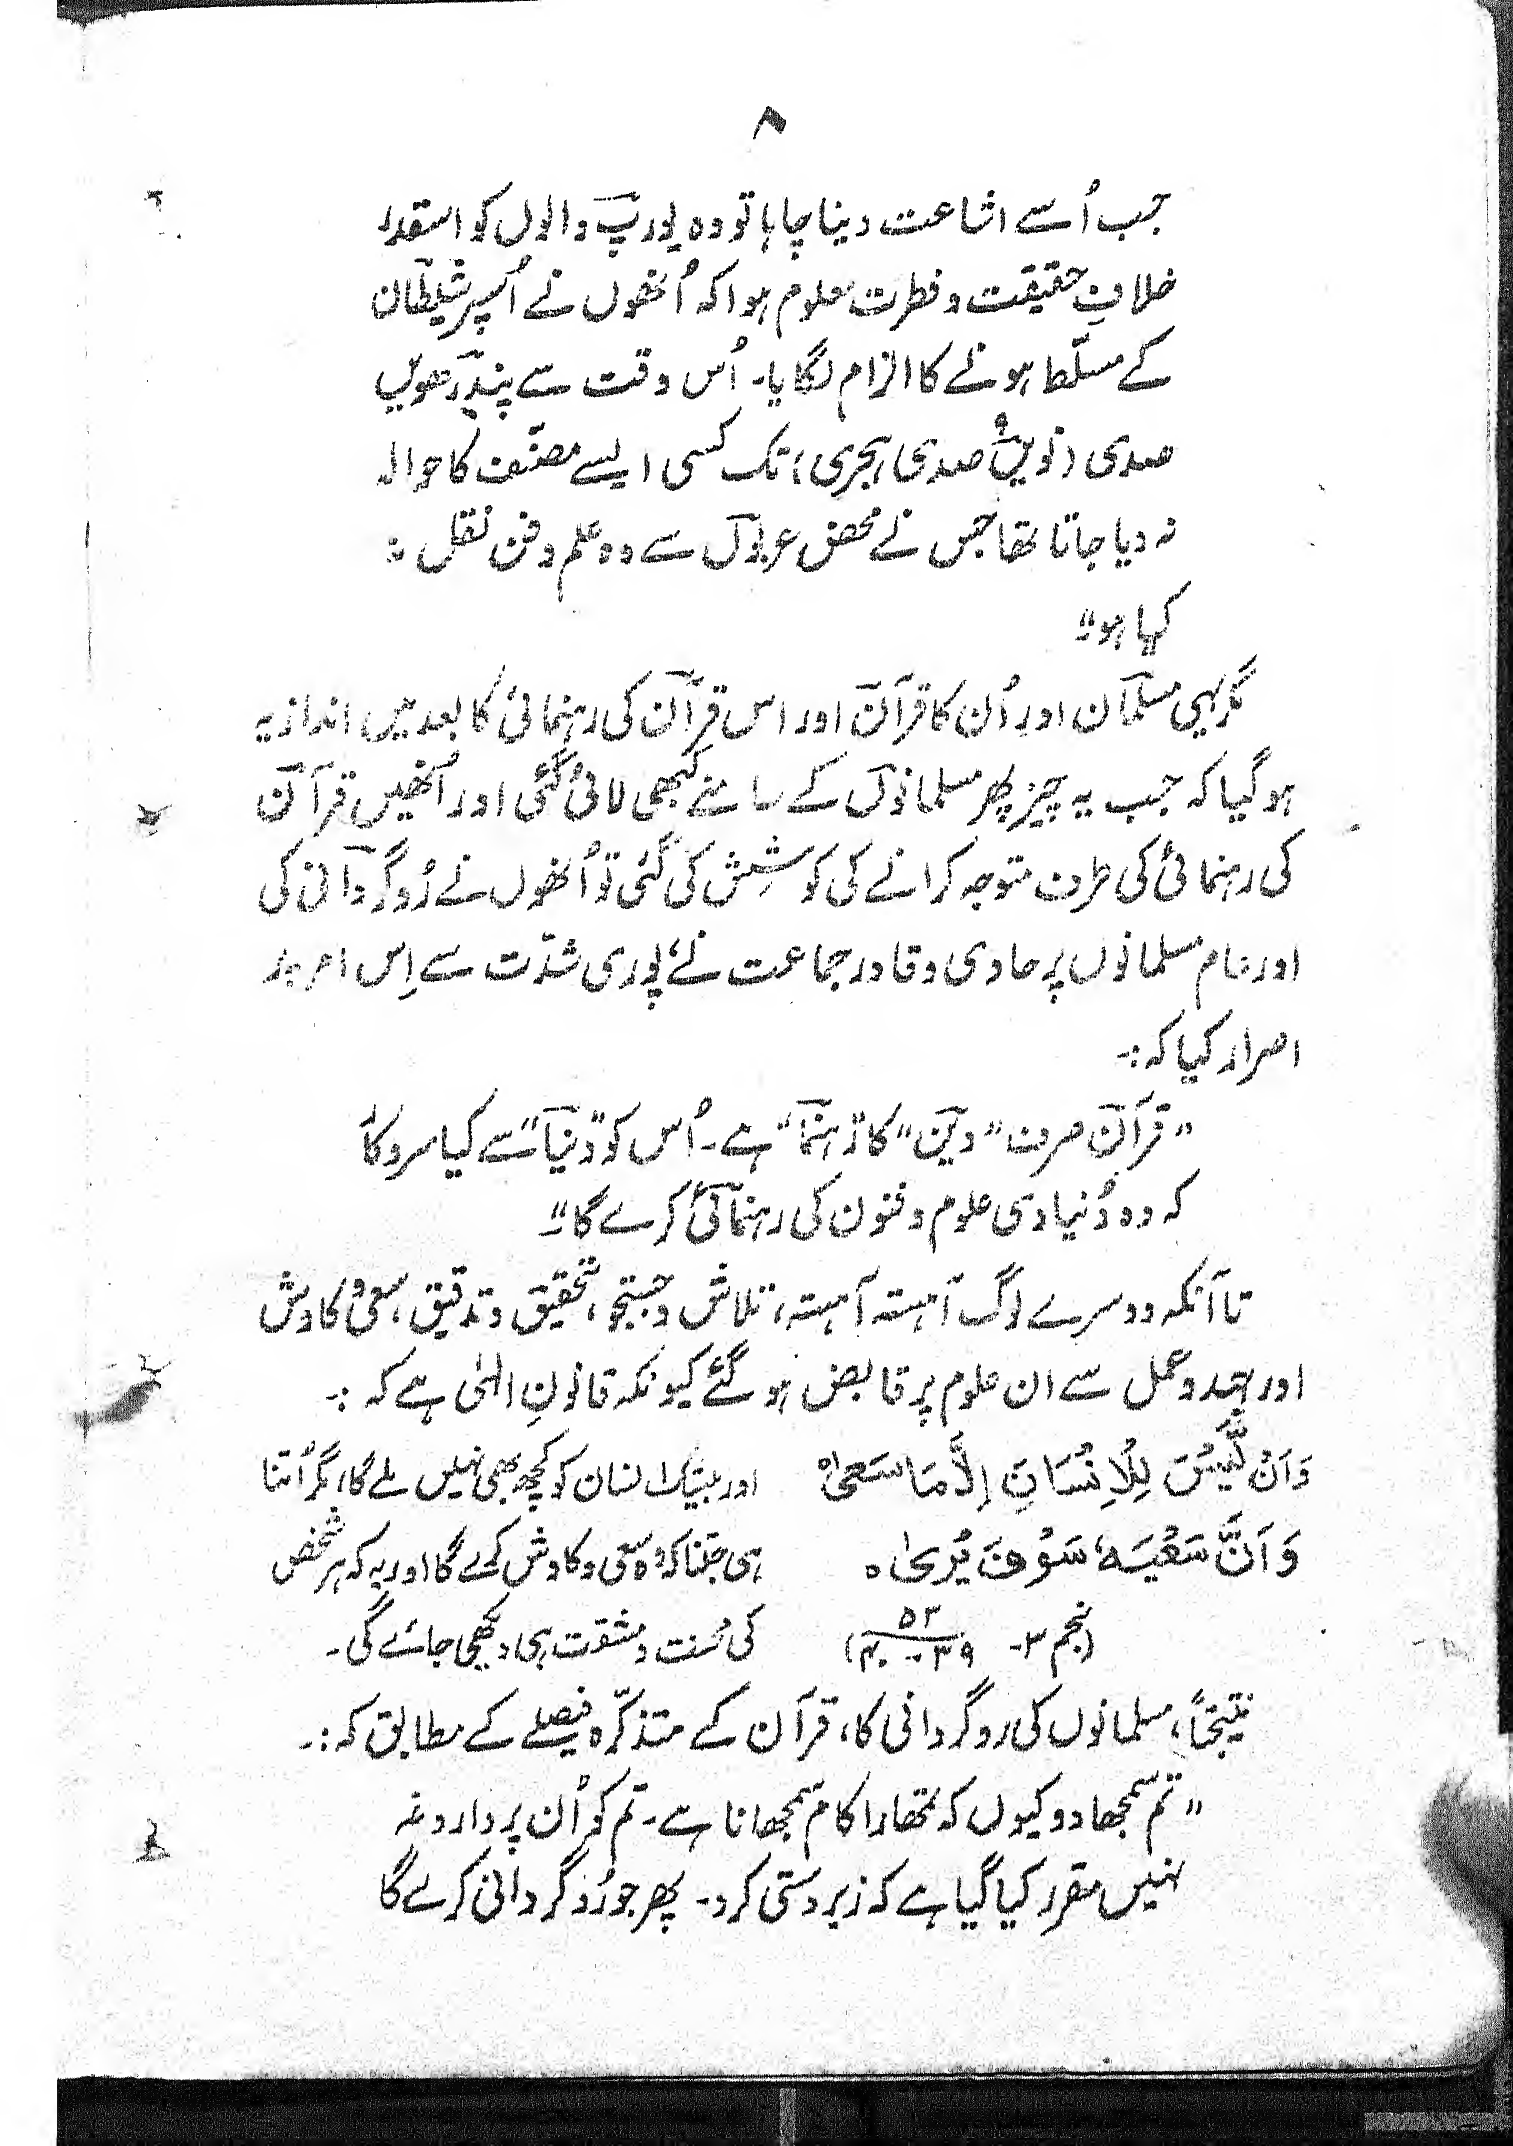 ۸
جب اُسے اشاعت دینا چاہا تو وہ یورپ والوں کو اسقدر
خلافِ حقیقت و فطرت معلوم ہوا کہ اُنھوں نے اُسپر شیطان
کے مسلّط ہونے کا الزام لگایا۔ اُس وقت سے پندرھویں
صدی (نویں صدی ہجری) تک کسی ایسے مصنّف کا حوالہ
نہ دیا جاتا تھا جس نے محض عربوں سے وہ علم و فن نقل نہ
کیا ہو"
مگر یہی مسلمان اور اُن کا قرآن اور اس قرآن کی رہنمائی کا بعد میں انداز یہ
ہو گیا کہ جب یہ چیز پھر مسلمانوں کے سامنے کبھی لائی گئی اور اُنھیں قرآن
کی رہنمائی کی طرف متوجہ کرانے کی کوشِش کی گئی تو اُنھوں نے رُوگردانی کی
اور عام مسلمانوں پر حاوی و قادر جماعت نے پوری شدّت سے اِس امر پر
اصرار کیا کہ :۔
"قرآن صرف "دین" کا "رہنما" ہے۔ اُس کو "دُنیا" سے کیا سروکار
کہ وہ دُنیاوی علوم و فنون کی رہنمائی کرے گا"
تا آنکہ دوسرے لوگ آہستہ آہستہ، تلاش و جستجو، تحقیق و تدقیق، سعی و کاوش
اور جہد و عمل سے ان علوم پر قابض ہو گئے کیونکہ قانونِ الٰہی ہے کہ :۔
وَاَنْ لَّيْسَ لِلْاِنْسَانِ اِلَّا مَا سَعٰیۙ اور بیشک انسان کو کچھ بھی نہیں ملے گا، مگر اُتنا
وَ اَنَّ سَعْيَهٗ سَوْفَ يُرٰی ہ ہی جتنا کہ وہ سعی و کاوش کرے گا اور یہ کہ ہر شخص
(نجم ۳- ۵۳ / ۳۹-۴۰) کی محنت و مشقت ہی دیکھی جائے گی۔
نتیجتاً، مسلمانوں کی روگردانی کا، قرآن کے متذکّرہ فیصلے کے مطابق کہ :۔
"تم سمجھا دو کیوں کہ تمھارا کام سمجھانا ہے۔ تم کو اُن پر داروغہ
نہیں مقرر کیا گیا ہے کہ زبردستی کرو۔ پھر جو رُوگردانی کرے گا